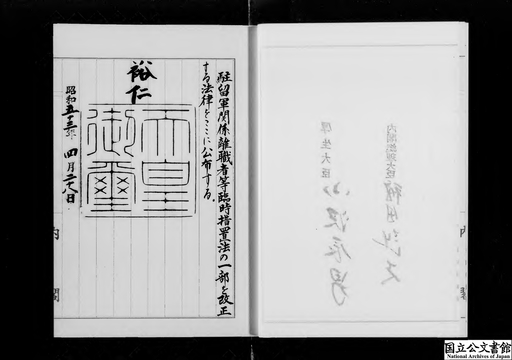 内閣総理大臣 福田赳夫
厚生大臣 小沢辰男
駐留軍関係離職者等臨時措置法の一部を改正
する法律をここに公布する。
裕仁
天皇
御璽
昭和五十三年四月二十八日
内閣
国立公文書館
National Archives of Japan